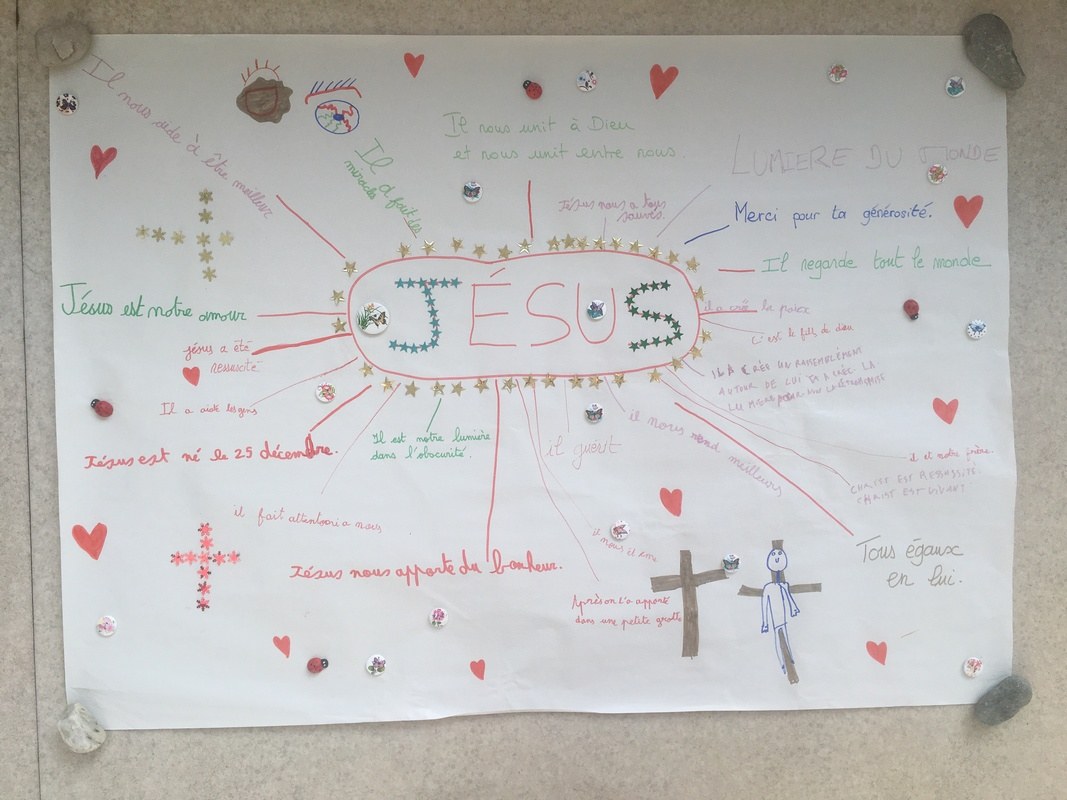 Il nous aide à être meilleur
Il a fait des
miracles
Il nous unit à Dieu
et nous unit entre nous.
LUMIERE DU MONDE
Jésus nous a tous
sauvés.
Merci pour ta générosité.
Il regarde tout le monde
JÉSUS
Jésus est notre amour
il a créé la paix
C'est le fils de dieu
jésus a été
ressuscité
IL A CRÉÉ UN RASSEMBLEMENT
AUTOUR DE LUI
LA
Il a aidé les gens
Jésus est né le 25 décembre.
Il est notre lumière
dans l'obscurité.
il guérit
il nous rend meilleurs
il et notre frère.
CHRIST EST RESSUSSITÉ
CHRIST EST VIVANT
il fait attention a nous
Jésus nous apporte du bonheur.
il nous
Tous égaux
en lui.
Après on l'a apporté
dans une petite grotte